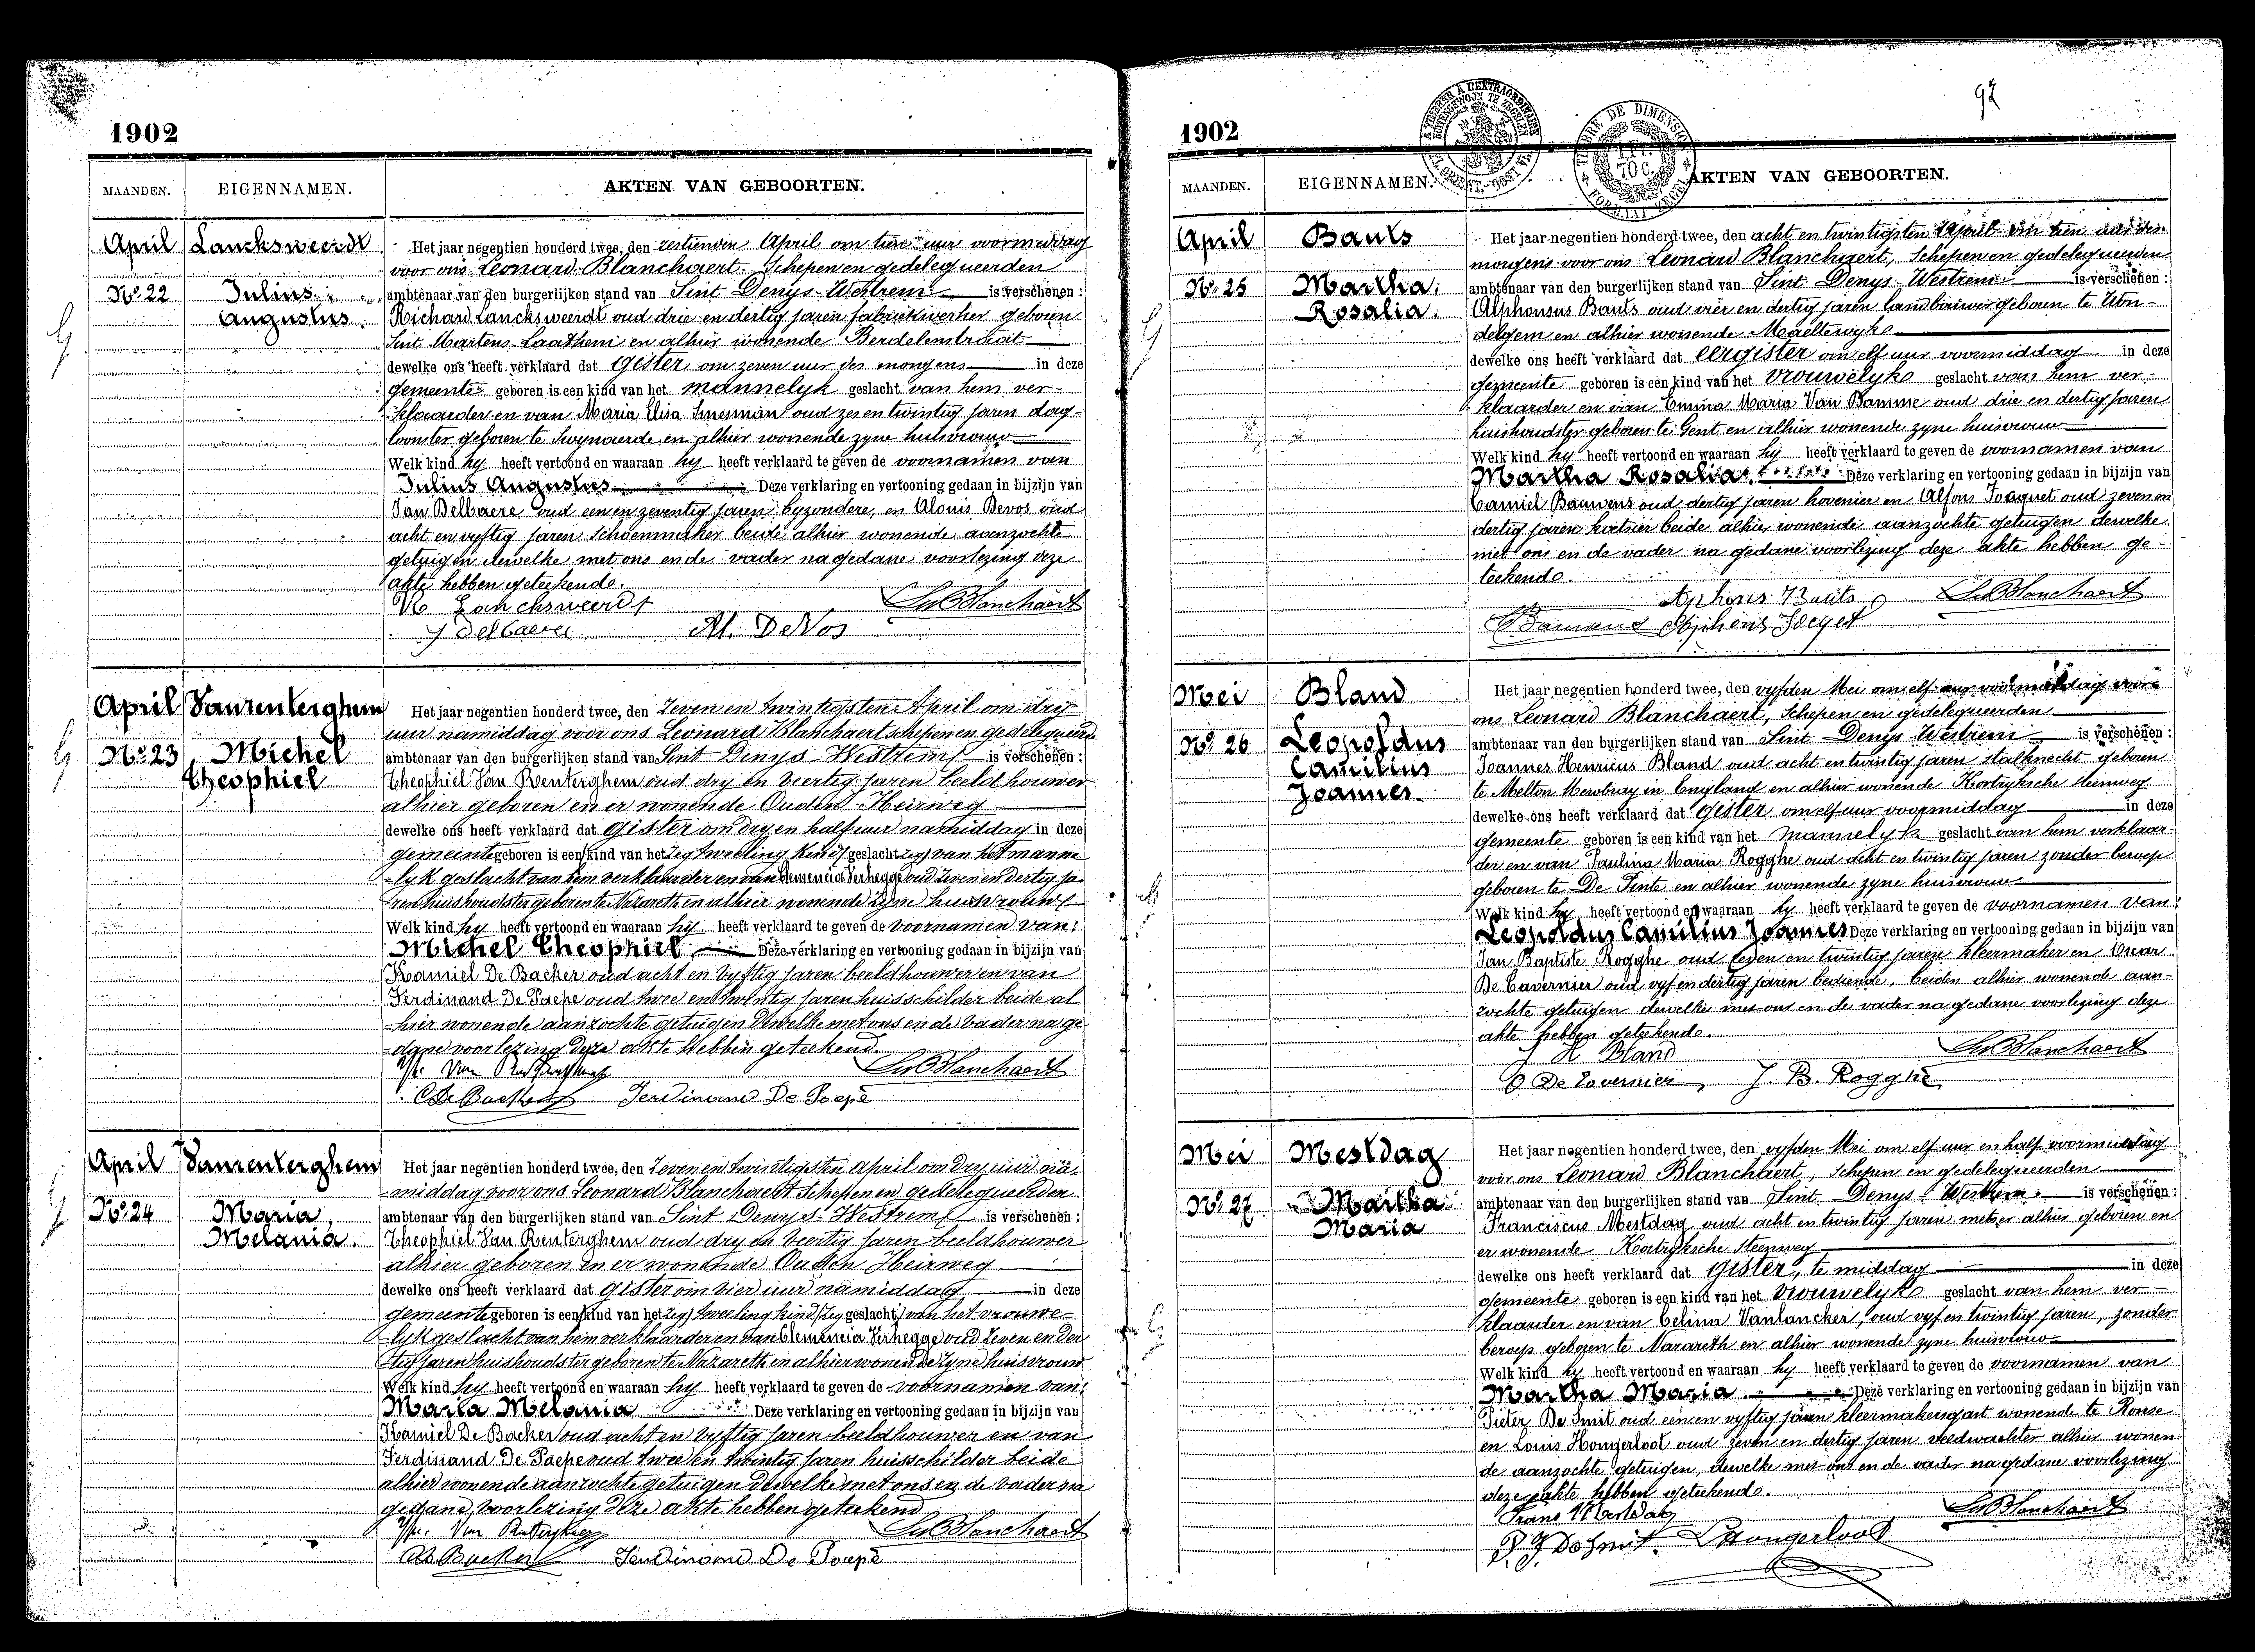 1902
MAANDEN. EIGENNAMEN. AKTEN VAN GEBOORTEN.
April Lancksweerdt
Het jaar negentien honderd twee, den zestienden April om tien uur voormiddag
voor ons Leonard Blanchaert Schepen en gedelegueerden
No 22 Julius
ambtenaar van den burgerlijken stand van Sint Denys-Westrem is verschenen :
Augustus
Richard Lancksweerdt oud drie en dertig jaren fabriekwerker geboren
Sint Martens-Laathem en alhier wonende Berdelenstraat
dewelke ons heeft verklaard dat gister om zeven uur des morgens in deze
gemeente geboren is een kind van het mannelyk geslacht van hem ver-
klaarder en van Maria Elisa Smesman oud zes en twintig jaren dag-
loonster geboren te Swynaerde en alhier wonende zyne huisvrouw
Welk kind hy heeft vertoond en waaraan hy heeft verklaard te geven de voornamen van
Julius Augustus Deze verklaring en vertooning gedaan in bijzijn van
Jan Delbaere oud een en zeventig jaren byzondere, en Alouis Devos oud
acht en vyftig jaren schoenmaker beide alhier wonende aanzochte
getuigen dewelke met ons en de vader na gedane voorlezing deze
akte hebben geteekend.
Lancksweerdt Blanchaert
J Delbaere Al. DeVos
April Vanrenterghem
Het jaar negentien honderd twee, den zeven en twintigsten April om dry
uur namiddag voor ons Leonard Blanchaert schepen en gedelegueerd
No 23 Michel
ambtenaar van den burgerlijken stand van Sint Denys-Westrem is verschenen :
Theophiel
Theophiel Van Renterghem oud dry en veertig jaren beeldhouwer
alhier geboren en er wonende Ouden Heirweg
dewelke ons heeft verklaard dat gister om dry en half uur namiddag in deze
gemeente geboren is een kind van het zeg tweeling kind geslacht zeg van het manne
-lyk geslacht van hem verklaarder en van Clemencia Verhegge oud zeven en dertig ja-
ren huishoudster geboren te Nazareth en alhier wonende zyne huisvrouw
Welk kind hy heeft vertoond en waaraan hy heeft verklaard te geven de voornamen van:
Michel Theophiel Deze verklaring en vertooning gedaan in bijzijn van
Kamiel De Backer oud acht en vyftig jaren beeldhouwer en van
Ferdinand De Paepe oud twee en twintig jaren huisschilder beide al
-hier wonende aanzochte getuigen dewelke met ons en de vader na ge
-dane voorlezing deze akte hebben geteekend.
Van Blanchaert
De Backer Ferdinand De Paepe
April Vanrenterghem
Het jaar negentien honderd twee, den zeven en twintigsten April om dry uur na-
middag voor ons Leonard Blanchaert Schepen en gedelegueerden
No 24 Maria
ambtenaar van den burgerlijken stand van Sint Denys-Westrem is verschenen :
Melania.
Theophiel Van Renterghem oud dry en veertig jaren beeldhouwer
alhier geboren en er wonende Ouden Heirweg
dewelke ons heeft verklaard dat gister om vier uur namiddag in deze
gemeente geboren is een kind van het zeg tweeling kind zeg geslacht van het vrouwe-
-lyk geslacht van hem verklaarder en van Clemencia Verhegge oud zeven en der
tig jaren huishoudster geboren te Nazareth en alhier wonende zyne huisvrouw
Welk kind hy heeft vertoond en waaraan hy heeft verklaard te geven de voornamen van:
Maria Melania Deze verklaring en vertooning gedaan in bijzijn van
Kamiel De Backer oud acht en vyftig jaren beeldhouwer en van
Ferdinand De Paepe oud twee en twintig jaren huisschilder beide
alhier wonende aanzochte getuigen dewelke met ons en de vader na
gedane voorlezing deze akte hebben geteekend
Van Blanchaert
De Backer Ferdinand De Paepe
97
1902
TIMBRE DE DIMENSION
70 C.
MAANDEN. EIGENNAMEN. AKTEN VAN GEBOORTEN.
April Bauts
Het jaar negentien honderd twee, den acht en twintigsten April om tien uur des
morgens voor ons Leonard Blanchaert, Schepen en gedelegueerden
No 25 Martha
ambtenaar van den burgerlijken stand van Sint Denys-Westrem is verschenen :
Rosalia.
Alphonsus Bauts oud vier en dertig jaren landbouwer geboren te Von-
delgem en alhier wonende Maeltewyk
dewelke ons heeft verklaard dat eergister om elf uur voormiddag in deze
gemeente geboren is een kind van het vrouwelyk geslacht van hem ver-
klaarder en van Emma Maria Van Damme oud drie en dertig jaren
huishoudster geboren te Gent en alhier wonende zyne huisvrouw
Welk kind hy heeft vertoond en waaraan hy heeft verklaard te geven de voornamen van
Martha Rosalia. Deze verklaring en vertooning gedaan in bijzijn van
Camiel Bauwens oud dertig jaren hovenier en Alfons oud zeven en
dertig jaren beide alhier wonende aanzochte getuigen dewelke
met ons en de vader na gedane voorlezing deze akte hebben ge-
teekend.
Alphons Bauts Blanchaert
Alphons
Mei Bland
Het jaar negentien honderd twee, den vyfden Mei om elf uur voormiddag voor
ons Leonard Blanchaert, Schepen en gedelegueerden
No 26 Leopoldus
ambtenaar van den burgerlijken stand van Sint Denys-Westrem is verschenen :
Camilius
Joannes Henricus Bland oud acht en twintig jaren stalknecht geboren
Joannes
te Melton Mowbury in England en alhier wonende Kortryksche steenweg
dewelke ons heeft verklaard dat gister om elf uur voormiddag in deze
gemeente geboren is een kind van het mannelyk geslacht van hem verklaar-
der en van Paulina Maria Rogghe oud acht en twintig jaren zonder beroep
geboren te De Pinte en alhier wonende zyne huisvrouw
Welk kind hy heeft vertoond en waaraan hy heeft verklaard te geven de voornamen van:
Leopoldus Camilius Joannes Deze verklaring en vertooning gedaan in bijzijn van
Jan Baptiste Rogghe oud zeven en twintig jaren kleermaker en Oscar
De Tavernier oud vyf en dertig jaren bediende, beiden alhier wonende aan-
zochte getuigen dewelke met ons en de vader na gedane voorlezing deze
akte hebben geteekend.
J H Bland Blanchaert
O De Tavernier J. B. Rogghe
Mei Mestdag
Het jaar negentien honderd twee, den vyfden Mei om elf uur en half voormiddag
voor ons Leonard Blanchaert, Schepen en gedelegueerden
No 27 Martha
ambtenaar van den burgerlijken stand van Sint Denys-Westrem is verschenen :
Maria
Franciscus Mestdag oud acht en twintig jaren metser alhier geboren en
er wonende Kortryksche Steenweg
dewelke ons heeft verklaard dat gister, te middag in deze
gemeente geboren is een kind van het vrouwelyk geslacht van hem ver-
klaarder en van Celina Vanlancker, oud vyf en twintig jaren, zonder
beroep geboren te Nazareth en alhier wonende zyne huisvrouw
Welk kind hy heeft vertoond en waaraan hy heeft verklaard te geven de voornamen van
Martha Maria Deze verklaring en vertooning gedaan in bijzijn van
Pieter De Smit oud een en vyftig jaren kleermakersgast wonende te Ronse
en Louis Hongerloot oud zeven en dertig jaren veldwachter alhier wonen-
de aanzochte getuigen, dewelke met ons en de vader na gedane voorlezing
deze akte hebben geteekend.
Frans Mestdag Blanchaert
P. J DeSmit. L Hongerloot